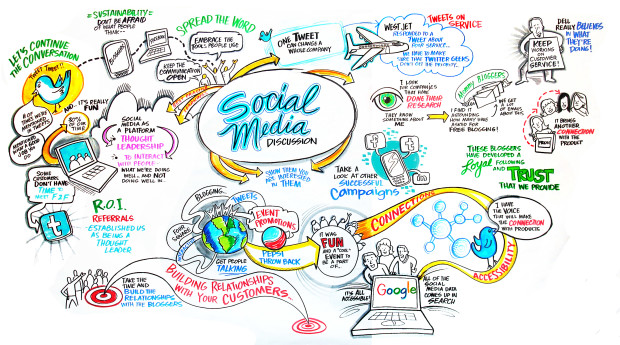 #SUSTAINABILITY=
DON'T BE AFRAID
OF WHAT
PEOPLE
THINK--
LET'S CONTINUE
THE
CONVERSATION
TWEET TWEET!!
AND... IT'S REALLY
FUN
80%
OF OUR
TIME
SOME
CUSTOMERS
DON'T HAVE
TIME TO
MEET F2F
t
SPREAD THE WORD
EMBRACE THE
TOOLS PEOPLE USE
KEEP THE
COMMUNICATION
OPEN
SOCIAL
MEDIA AS
A PLATFORM
THOUGHT
LEADERSHIP
TO INTERACT
WITH PEOPLE--
WHAT WE'RE DOING
WELL... AND NOT
DOING WELL...
R.O.I.
REFERRALS
-ESTABLISHED
US AS
BEING A
THOUGHT
LEADER
Social
Media
DISCUSSION
ONE TWEET
CAN CHANGE A
WHOLE COMPANY
WEST JET
RESPONDED TO
A TWEET ABOUT
POOR SERVICE...
TWEETS ON
SERVICE
KEEP
WORKING
ON
CUSTOMER
SERVICE!
DELL
REALLY BELIEVES
IN WHAT
THEY'RE
DOING!
I LOOK
FOR COMPANIES
THAT HAVE
DONE THEIR
RESEARCH
THEY KNOW
SOMETHING
ABOUT ME
MOMMY BLOGGERS
I FIND IT
ASTOUNDING
HOW MANY HAVE
ASKED FOR
FREE BLOGGING!
WE GET
A LOT OF
EMAILS ABOUT THIS.
IT BRINGS
ANOTHER
CONNECTION
WITH THE
PRODUCT
SHOW THEM YOU
ARE INTERESTED
IN THEM
TAKE A
LOOK AT OTHER
SUCCESSFUL
Campaigns
THESE BLOGGERS
HAVE DEVELOPED A
Loyal FOLLOWING
AND TRUST
THAT WE PROVIDE
BLOGGING
TWEETS
FOUR
SQUARE
EVENT
PROMOTIONS
GET PEOPLE
TALKING
PEPSI
THROW BACK
IT WAS
FUN
AND A "COOL"
EVENT TO
BE A PART
OF...
CONNECTIONS
I HAVE
THE VOICE
THAT WILL MAKE
THE CONNECTION
WITH PRODUCTS
ACCESSIBILITY
TAKE THE
TIME AND
BUILD THE
RELATIONSHIPS
WITH THE BLOGGERS
BUILDING RELATIONSHIPS
WITH YOUR CUSTOMERS...
IT'S ALL
ACCESSIBLE!
Google
ALL OF THE
SOCIAL
MEDIA DATA
COMES UP IN
SEARCH